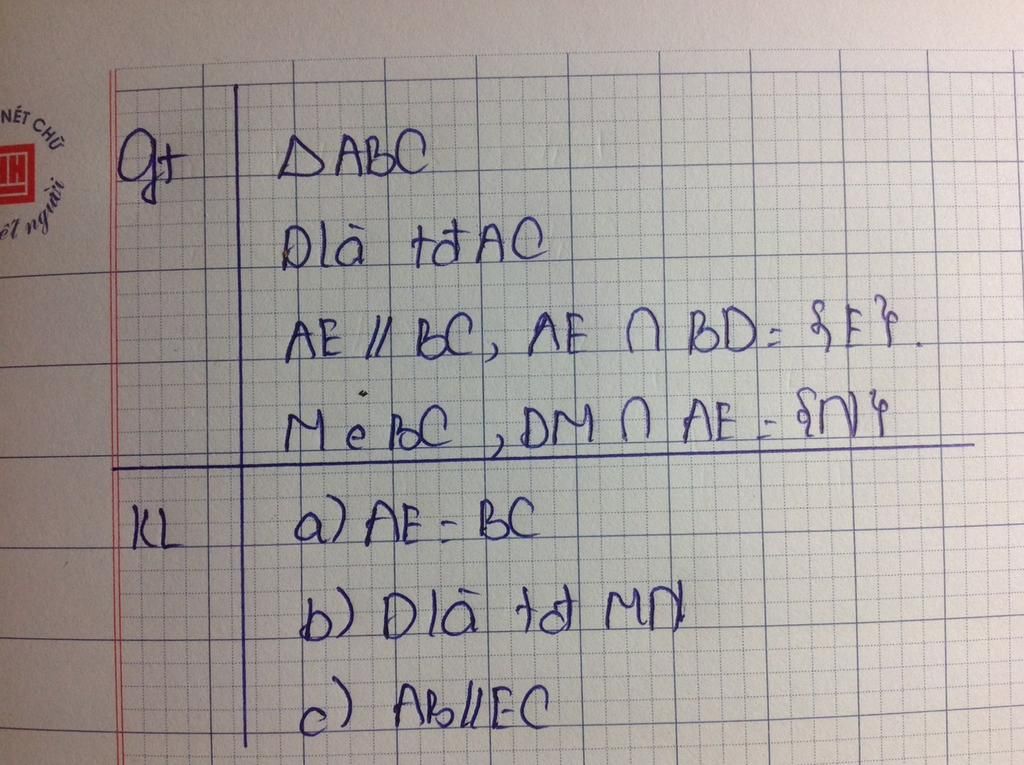 NÉT CHỮ
ết người
Gt ΔABC
D là tđ AC
AE // BC, AE ∩ BD = {E}.
M ∈ BC, DM ∩ AE = {N}
KL a) AE = BC
b) D là tđ MN
c) AB // EC